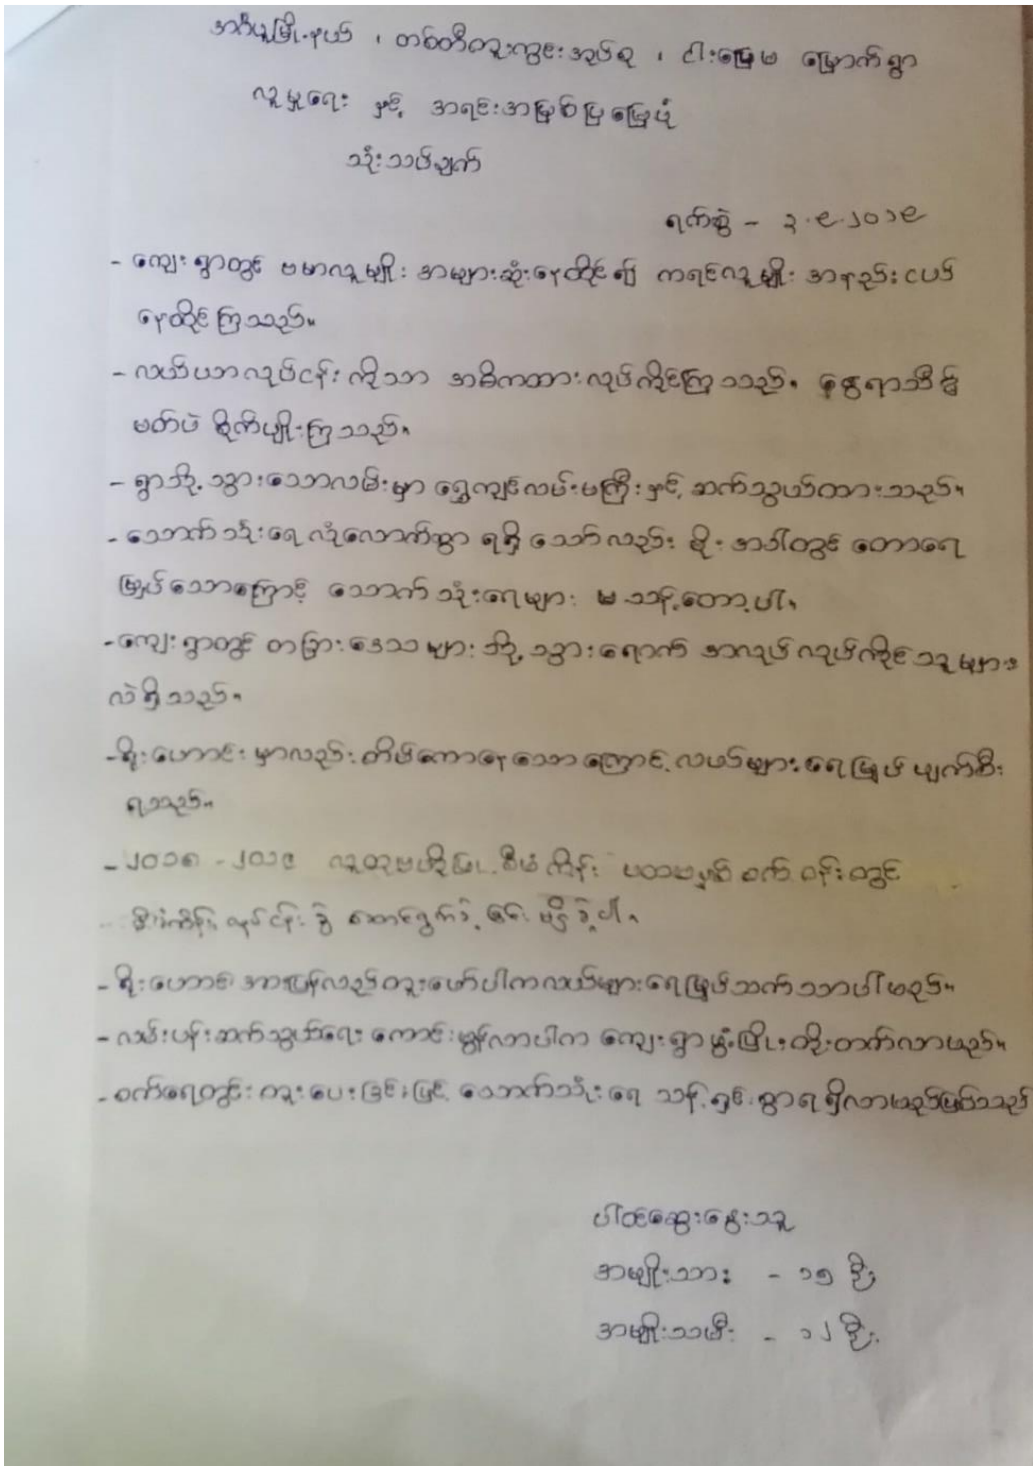 အင်္ဂပူမြို့နယ် ၊ တစ်တီကူးကွင်းအုပ်စု ၊ ငါးမြွေမ မြောက်ရွာ
လူမှုရေး နှင့် အရင်းအမြစ်ပြမြေပုံ
သုံးသပ်ချက်
ရက်စွဲ - ၃.၉.၂၀၁၉
- ကျေးရွာတွင် ဗမာလူမျိုး အများဆုံးနေထိုင်၍ ကရင်လူမျိုး အနည်းငယ်
နေထိုင်ကြသည်။
- လယ်ယာလုပ်ငန်းကိုသာ အဓိကထားလုပ်ကိုင်ကြသည်။ နွေရာသီ၌
မတ်ပဲ စိုက်ပျိုးကြသည်။
- ရွာသို့ သွားသောလမ်းမှာ ရွှေကျင်လမ်းမကြီးနှင့် ဆက်သွယ်ထားသည်။
- သောက်သုံးရေ လုံလောက်စွာ ရရှိသော်လည်း မိုးအခါတွင် တောရေ
မြှုပ်သောကြောင့် သောက်သုံးရေများ မသန့်တော့ပါ။
- ကျေးရွာတွင် တခြားဒေသများသို့ သွားရောက် အလုပ်လုပ်ကိုင်သူများ
လဲရှိသည်။
- ရိုးဟောင်းမှာလည်း တိမ်ကောနေသောကြောင့် လယ်များ ရေမြှုပ်ပျက်စီး
ရသည်။
- ၂၀၁၈ - ၂၀၁၉ လူထုဗဟိုပြု စီမံကိန်း ပထမနှစ်စက်ဝန်းတွင်
စီမံကိန်းလုပ်ငန်းခွဲ ဆောင်ရွက်ခဲ့ခြင်း မရှိခဲ့ပါ။
- ရိုးဟောင်းအားပြန်လည်တူးဖော်ပါကလယ်များရေမြှုပ်သက်သာပါမည်။
- လမ်းပန်းဆက်သွယ်ရေး ကောင်းမွန်လာပါက ကျေးရွာဖွံ့ဖြိုးတိုးတက်လာမည်။
- စက်ရေတွင်းတူးပေးခြင်းဖြင့် သောက်သုံးရေ သန့်ရှင်းစွာရရှိလာမည်ဖြစ်သည်
ပါဝင်ဆွေးနွေးသူ
အမျိုးသား - ၁၅ ဦး
အမျိုးသမီး - ၁၂ ဦး